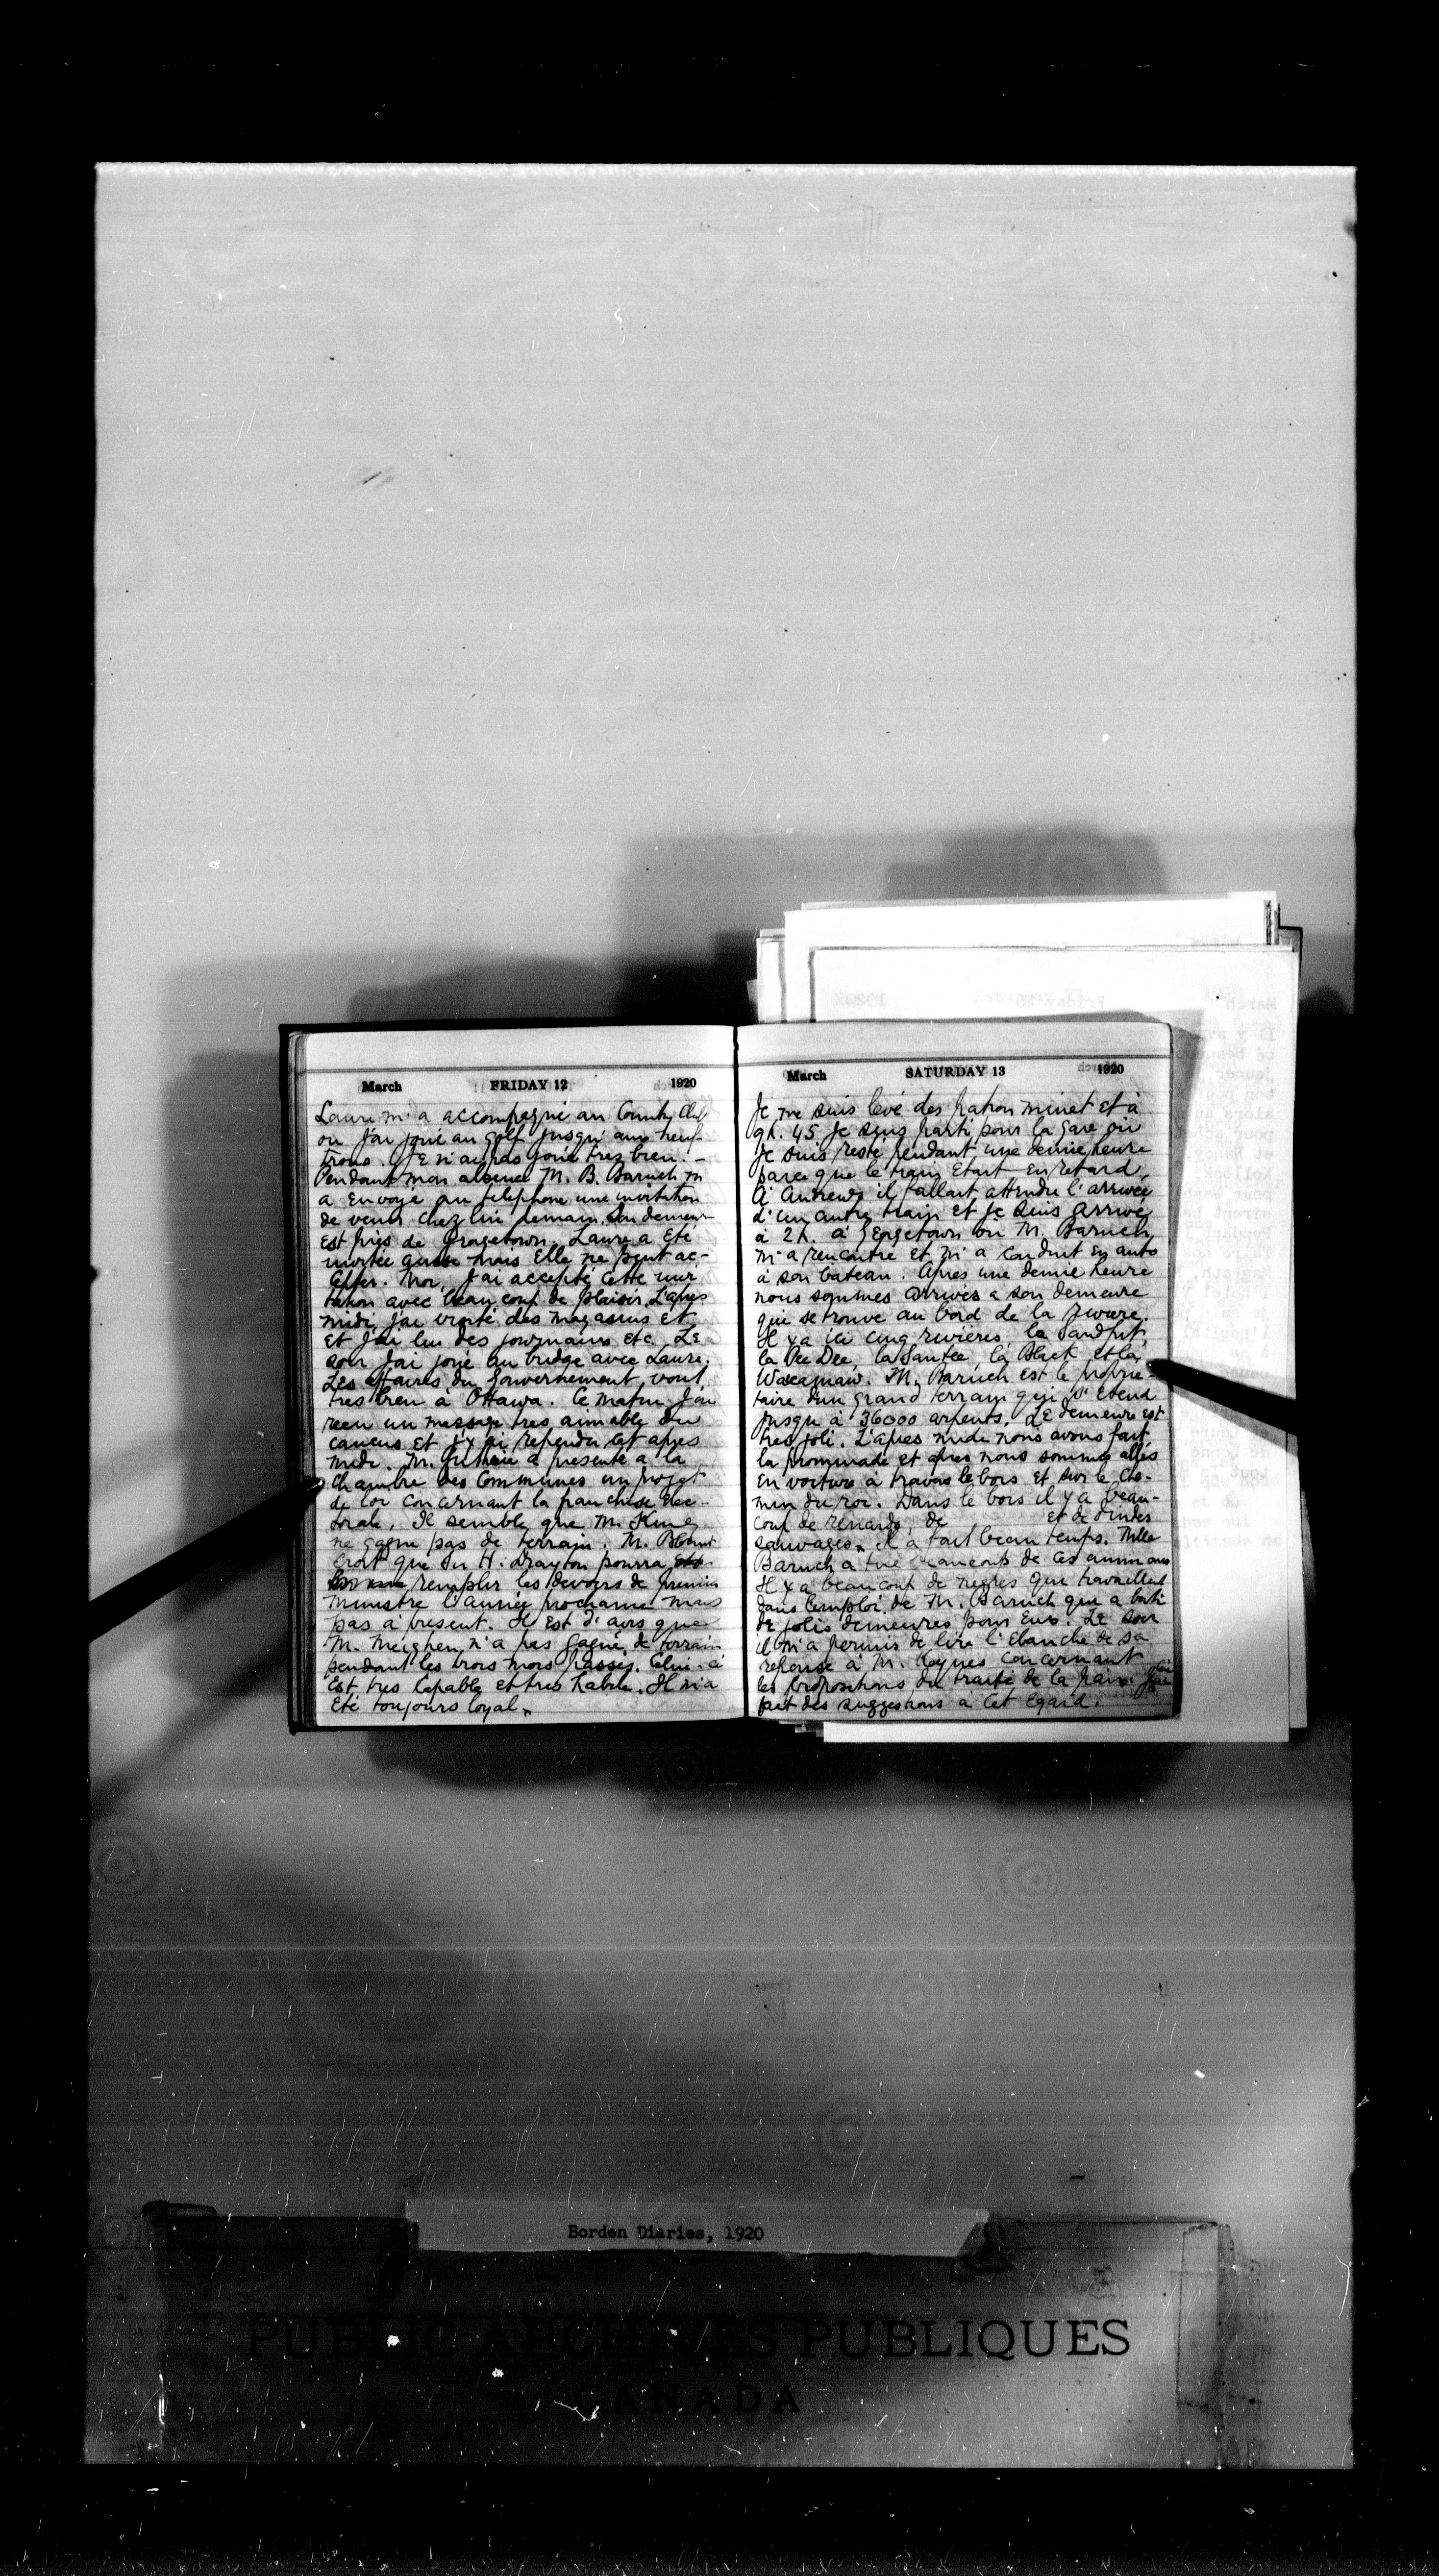 March FRIDAY 12 1920
Laura m'a accompagné au Country Club
ou j'ai joué au golf jusqu'aux neuf
trous. Je n'ai pas joué tres bien. —
Pendant mon absence M. B. Baruch m
a envoyé au telephone une invitation
de venir chez lui demain. Sa demeur
est près de Georgetown. Laura a eté
invitée aussi mais elle ne peut ac-
cepter. Moi, j'ai accepté cette invi
tation avec beaucoup de plaisir. L'apres
midi j'ai visité des magasins et
et j'ai lu des journaux etc. Le
soir j'ai joué au bridge avec Laura.
Les affaires du Gouvernement vont
tres bien à Ottawa. Ce matin j'ai
recu un message tres aimable du
caucus et j'y ai repondu cet apres
midi. M. Guthrie a presenté a la
Chambre des Communes un projet
de loi concernant la franchise elec-
torale. Il semble que M. King
ne gagne pas de terrain. M. Blount
croit que Sir H. Drayton pourra
remplir les devoirs de premier
ministre l'année prochaine mais
pas à present. Il est d'avis que
M. Meighen n'a pas gagné de terrain
pendant les trois mois passés. Celui-ci
est tres capable et tres habile. Il m'a
eté toujours loyal.
March SATURDAY 13 1920
Je me suis levé des patron minet et à
9h. 45 je suis parti pour la gare où
je suis resté pendant une demie heure
parce que le train etait en retard.
A Andrews il fallait attendre l'arrivée
d'un autre train et je suis arrivé
à 2h. à Georgetown où M. Baruch
m'a rencontre et m'a conduit en auto
à son bateau. Apres une demie heure
nous sommes arrivés a son demeure
qui se trouve au bord de la riviere.
Il y a ici cinq rivières, la Sandpit,
la Pee Dee, la Santee, la Black et la
Waccamaw. M. Baruch est le proprie-
taire d'un grand terrain qui s'etend
jusqu'à 36000 arpents. Le demeure est
tres joli. L'apres midi nous avons fait
la promenade et apres nous sommes allés
en voiture à travers le bois et sur le che-
min du roi. Dans le bois il y a beau-
coup de renards, de et de dindes
sauvages. Il a fait beau temps. Mlle
Baruch a tué beaucoup de ces animaux
Il y a beaucoup de negres que travaillent
dans l'emploi de M. Baruch qui a bati
de jolis demeures pour eux. Le soir
il m'a permis de lire l'ebauche de sa
reponse à M. Keynes concernant
les propositions du traité de la paix. J'ai
fait des suggestions à cet egard.
Borden Diaries, 1920
PUBLIC ARCHIVES PUBLIQUES
CANADA